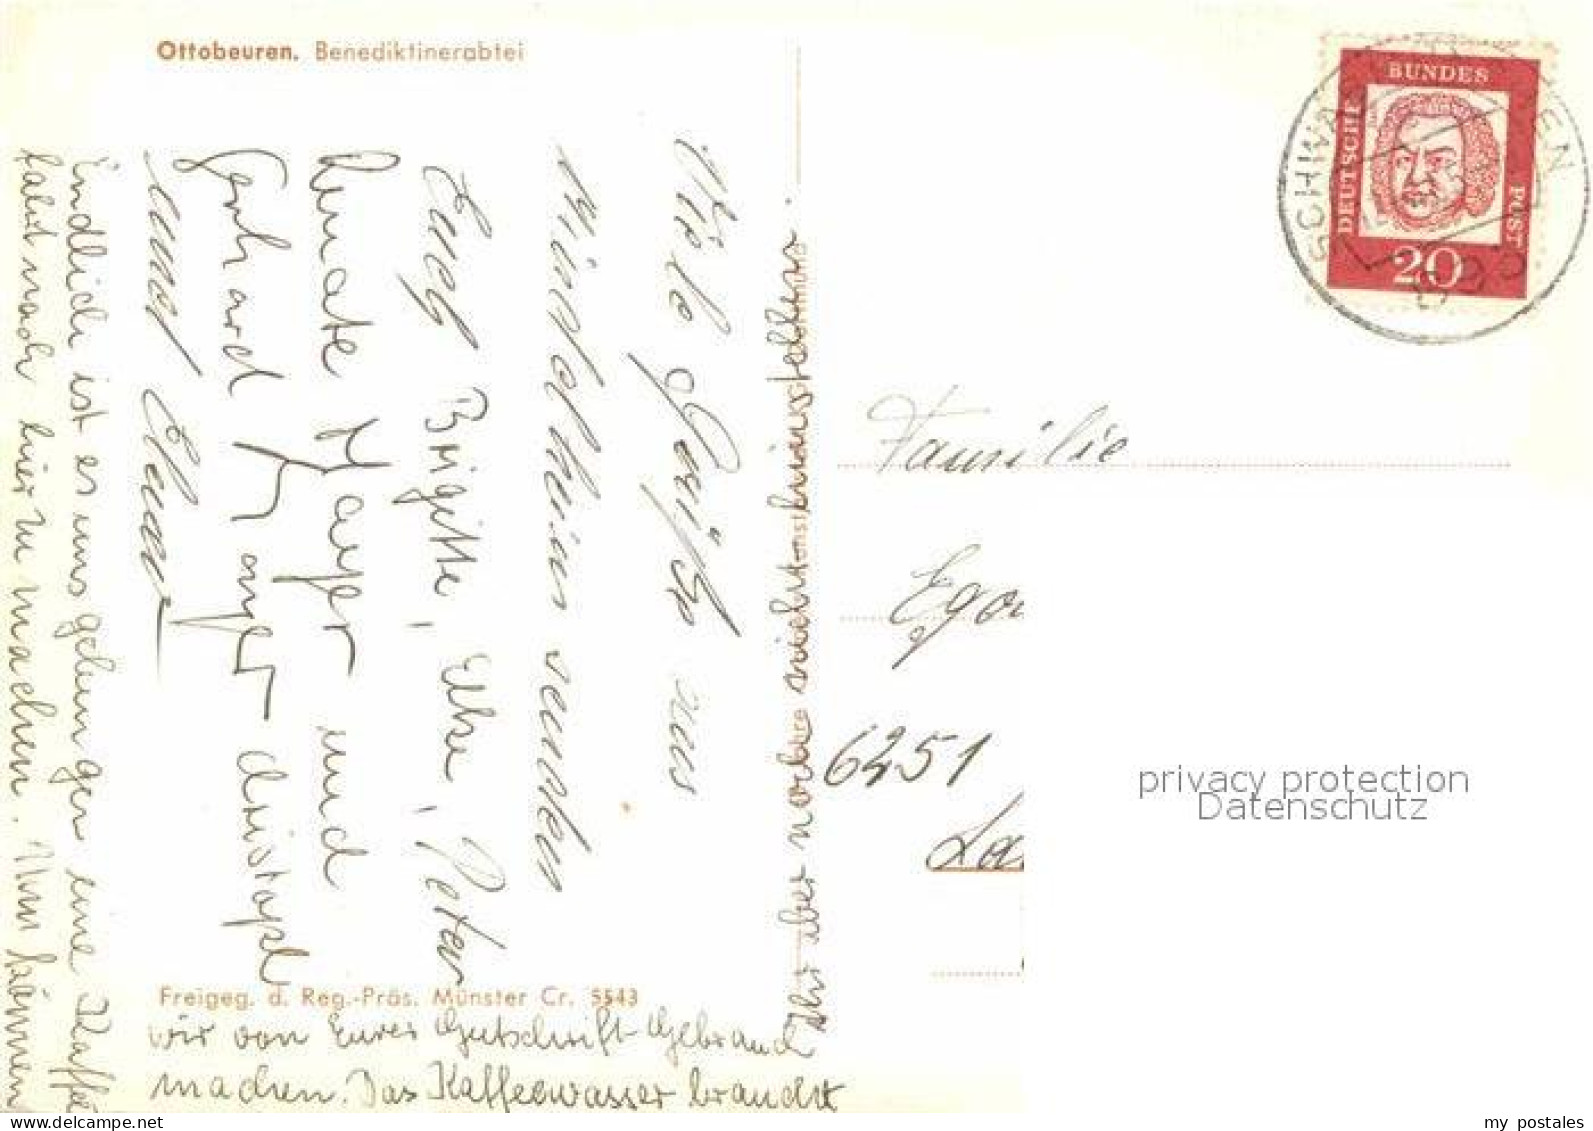 Ottobeuren. Benediktinerabtei
BUNDES
DEUTSCHE
POST
20
SCHWA
EN
Viele Grüße aus
Mindelheim senden
Euch Brigitte, Elke, Peter
Renate Mayer und
Gerhard
und
Endlich ist es uns gelungen eine Kaffee
fahrt nach hier zu machen. Nun können
wir von Eurer Gutschrift Gebrauch
machen. Das Kaffeewasser braucht
Ihr aber
nicht hinzustellen.
Freigeg. d. Reg.-Präs. Münster Cr. 5543
Familie
Ego
6251
La
privacy protection
Datenschutz
my postales